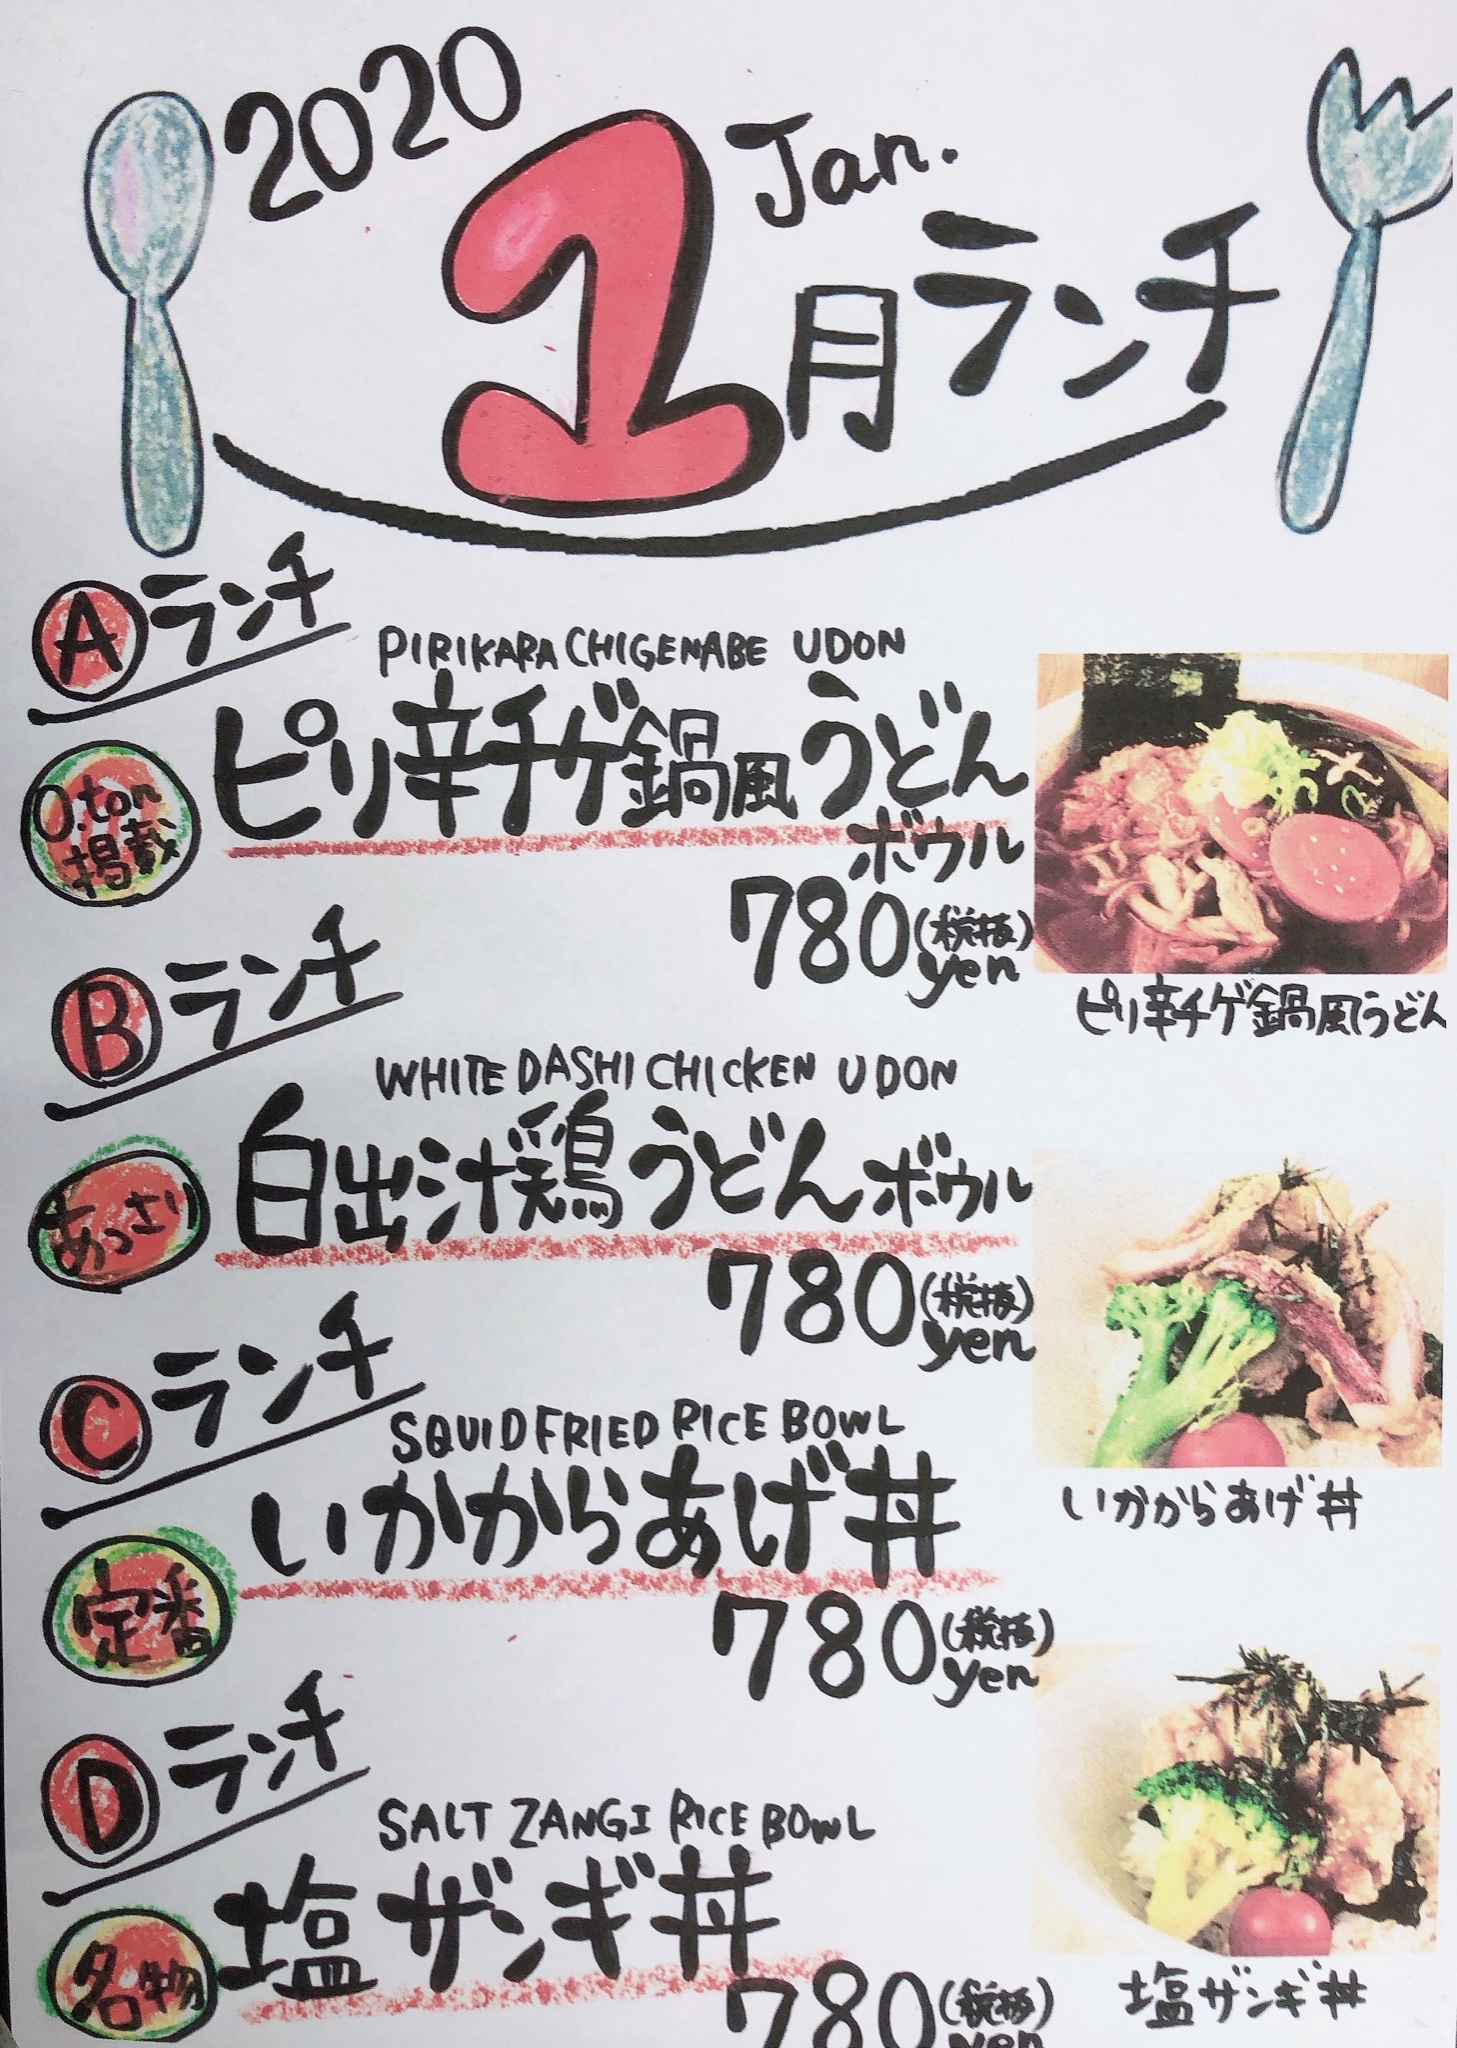 2020
1月ランチ
Jan.
Aランチ
PIRIKARA CHIGENABE UDON
ピリ辛チゲ鍋風うどん
ボウル
O.ton
掲載
780(税抜)
yen
ピリ辛チゲ鍋風うどん
Bランチ
WHITE DASHI CHICKEN UDON
白出汁鶏うどんボウル
あっさり
780(税抜)
yen
Cランチ
SQUID FRIED RICE BOWL
いかからあげ丼
定番
780(税抜)
yen
いかからあげ丼
Dランチ
SALT ZANGI RICE BOWL
塩ザンギ丼
名物
780(税抜)
yen
塩ザンギ丼